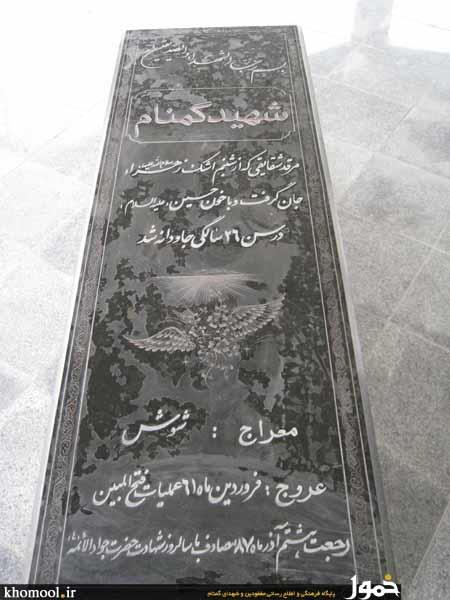 بسم رب الشهداء و الصدیقین
شهید گمنام
مرقد شقایقی که از شبنم اشک زهرا سلام الله علیها
جان گرفت و با خون حسین علیه السلام
در سن ۲۶ سالگی جاودانه شد
معراج : شوش
عروج : فروردین ماه ۶۱ عملیات فتح المبین
رجعت: هشتم آذر ماه ۸۷ مصادف با سالروز شهادت حضرت جواد الائمه
khomool.ir
خمول
پایگاه فرهنگی و اطلاع رسانی مفقودین و شهدای گمنام